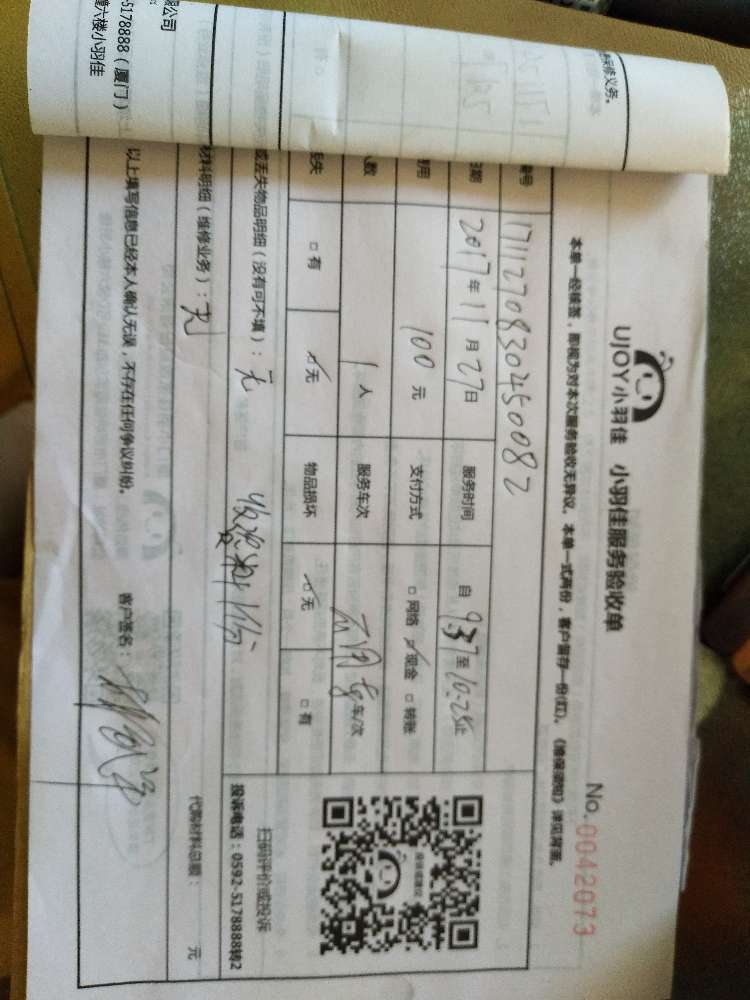 UJOY小羽佳 小羽佳服务验收单 No.0042073
本单一经核签，即视为对本次服务验收无异议。本单一式两份，客户留存一份(红)。《维保须知》详见背面。
编号 17112708302450082
日期 2017年11月27日 服务时间 自9:37至10:25止
费用 100元 支付方式 □网络 ☑现金 □转账
人数 1人 服务车次 车/次
丢失 □有 ☑无 物品损坏 ☑无 □有
或丢失物品明细（没有可不填）：无
材料明细（维修业务）：无 代购材料总额： 元
以上填写信息已经本人确认无误，不存在任何争议纠纷。 客户签名：
扫码评价或投诉
投诉电话：0592-5178888转2
限公司
-5178888（厦门）
六楼小羽佳
保修义务。